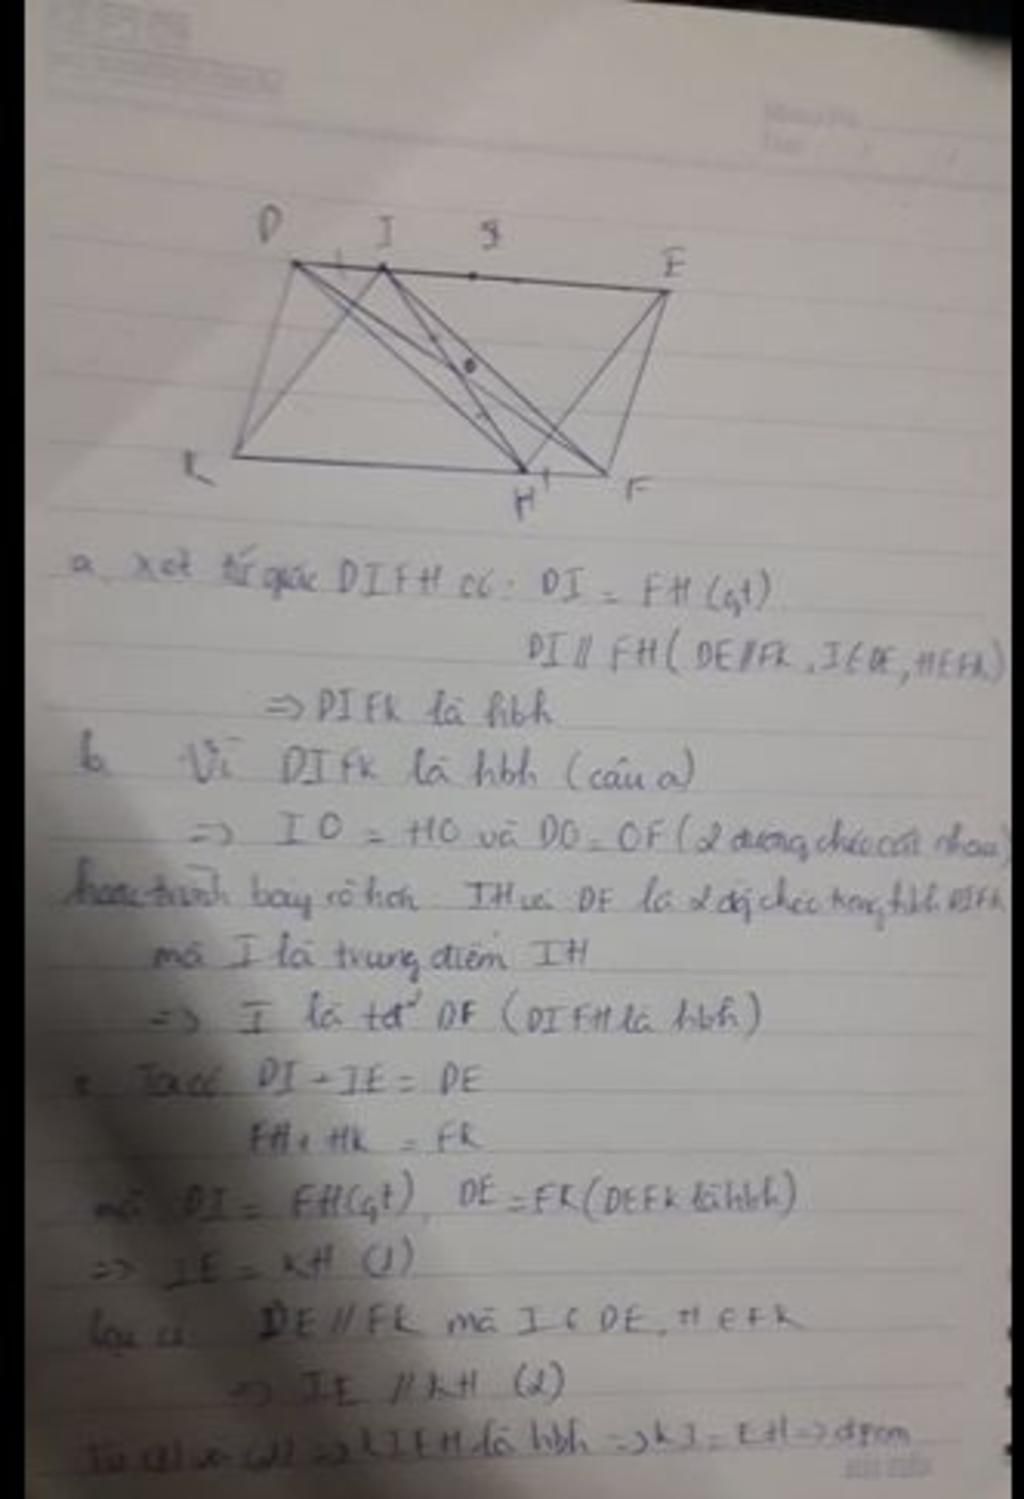 D I E
K H F
a. xét tứ giác DIFH có: DI = FH (gt)
DI // FH (DE // FK, I ∈ DE, H ∈ FK)
=> DIFK là hbh
b. Vì DIFK là hbh (câu a)
=> IO = HO và DO = OF (2 đường chéo cắt nhau)
hoặc trình bày rõ hơn IH và DF là 2 đg chéo trong hbh DIFH
mà I là trung điểm IH
=> I là tđ DF (DIFH là hbh)
c. Ta có DI + IE = DE
FH + HK = FK
mà DI = FH (gt), DE = FK (DEFK là hbh)
=> IE = KH (1)
lại có DE // FK mà I ∈ DE, H ∈ FK
=> IE // KH (2)
Từ (1) và (2) => KIEH là hbh => KI = EH => đpcm